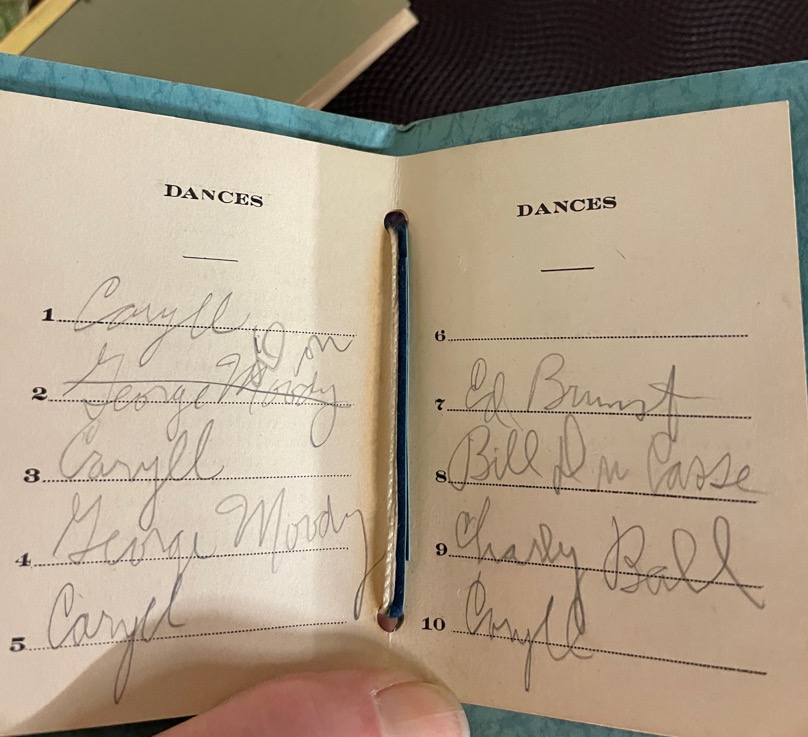 DANCES
1 Caryll
2 George Moody
3 Caryll
4 George Moody
5 Caryll
DANCES
6
7 Ed
8 Bill Casse
9 Charly Ball
10 Caryll